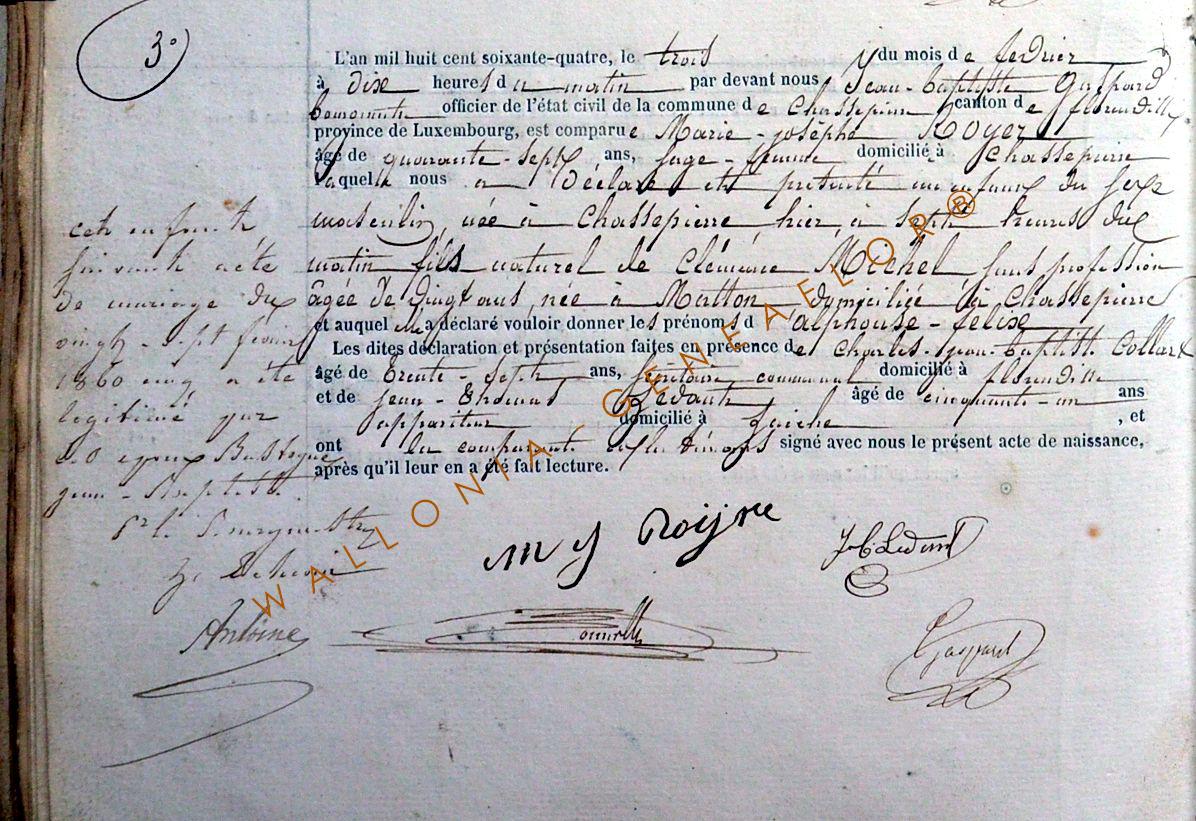 3°
L'an mil huit cent soixante-quatre, le trois du mois de fevrier
à dix heures du matin par devant nous Jean-Baptiste Gaspard
bourgmestre officier de l'état civil de la commune de Chassepierre canton de florenville
province de Luxembourg, est comparue Marie-josephe Royer
âgé de quarante-sept ans, sage-femme domicilié à Chassepierre
laquelle nous a déclaré et présenté un enfant du sexe
masculin, née à Chassepierre hier, à sept heures du
matin fils naturel de Clémence Michel sans profession
âgée de vingt ans, née à Matton, domiciliée à Chassepierre
et auquel elle a déclaré vouloir donner les prénoms d'alphonse-felix
Les dites déclaration et présentation faites en présence de Charles-jean-baptiste Collart
âgé de trente-sept ans, secrétaire communal domicilié à florenville
et de jean-Thomas Ledant âgé de cinquante-un ans
appariteur domicilié à Laiche, et
ont la comparante et les témoins signé avec nous le présent acte de naissance,
après qu'il leur en a été fait lecture.
cet enfant
suivant acte
de mariage du
vingt-sept février
1860 cinq a été
legitimé par
les époux
jean-Baptiste
Pr le Bourgmestre
Antoine
M J Roijre
J. T. Ledant
Gaspard
WALLONIA-GENEALOR®